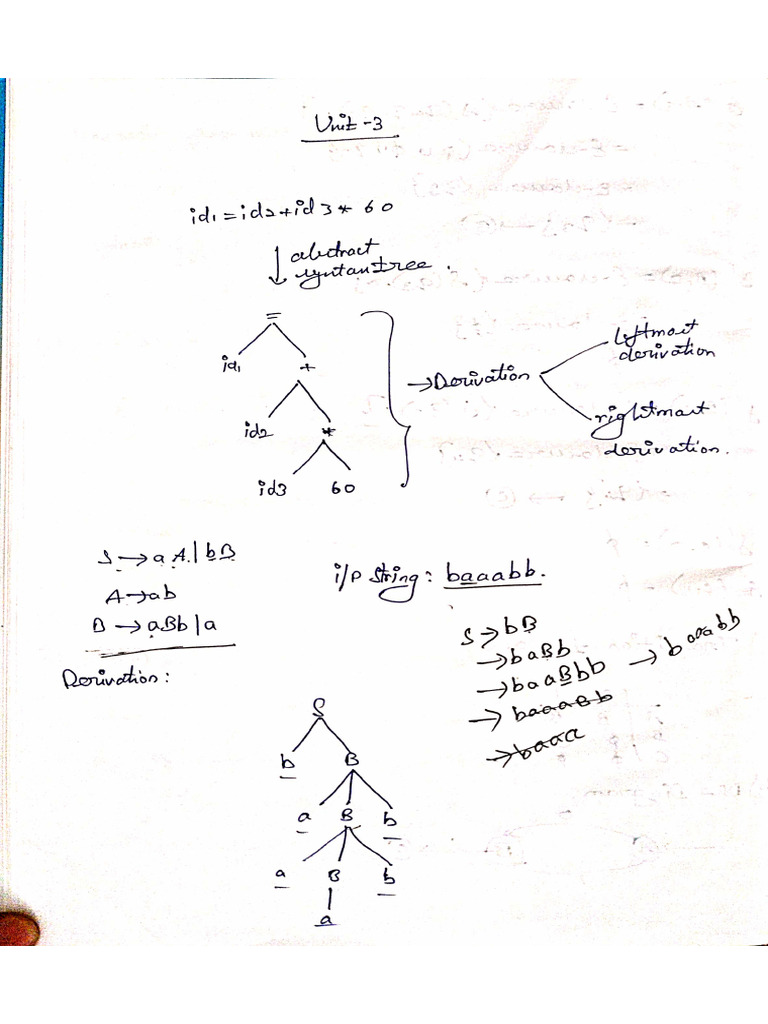 Unit-3
id1 = id2 + id3 * 60
↓ abstract
syntax tree.
=
id1 +
id2 *
id3 60
→ Derivation
leftmost
derivation
rightmost
derivation.
S → aA | bB
A → ab
B → aBb | a
i/p string : baaabb.
S → bB
→ baBb
→ baaBbb → baaabb
→ baaaBb
→ baaa
Derivation :
S
b B
a B b
a B b
a